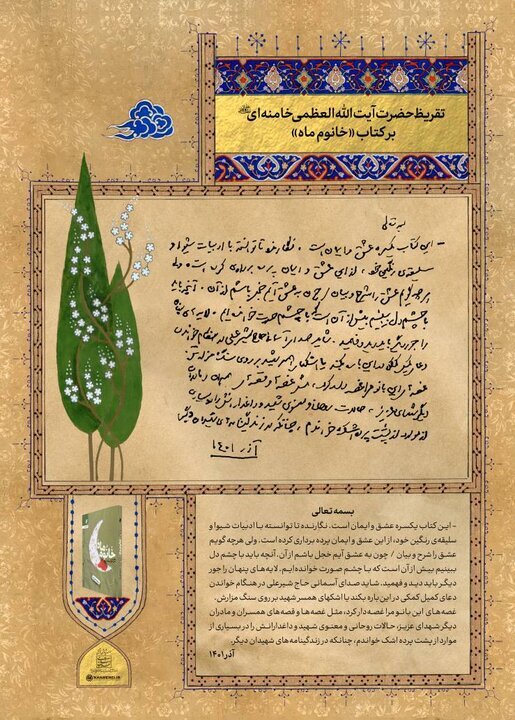 تقریظ حضرت آیت‌الله العظمی خامنه‌ای
بر کتاب «خانوم ماه»
بسمه تعالی
- این کتاب یکسره عشق و ایمان است. نگارنده تا توانسته با ادبیات شیوا و
سلیقه‌ی رنگین خود، از این عشق و ایمان پرده برداری کرده است. ولی
هر چه گویم عشق را شرح و بیان / چون به عشق آیم خجل باشم از آن. آنچه باید
با چشم دل ببینیم بیش از آن است که با چشم صورت خوانده‌ایم. لایه‌های پنهان
را جور دیگر باید دید و فهمید. شاید صدای آسمانی حاج شیرعلی در هنگام خواندن
دعای کمیل کمکی در این باره بکند یا اشکهای همسر شهید بر روی سنگ مزارش.
غصه‌های این بانو مرا غصه‌دار کرد، مثل غصه‌ها و قصه‌های همسران و مادران
دیگر شهدای عزیز، حالات روحانی و معنوی شهید و داغدارانش را در بسیاری
از موارد از پشت پرده اشک خواندم، چنانکه در زندگینامه‌های شهیدان دیگر.
آذر ۱۴۰۱
بسمه تعالی
- این کتاب یکسره عشق و ایمان است. نگارنده تا توانسته با ادبیات شیوا و
سلیقه‌ی رنگین خود، از این عشق و ایمان پرده برداری کرده است. ولی هرچه گویم
عشق را شرح و بیان / چون به عشق آیم خجل باشم از آن. آنچه باید با چشم دل
ببینیم بیش از آن است که با چشم صورت خوانده‌ایم. لایه‌های پنهان را جور
دیگر باید دید و فهمید. شاید صدای آسمانی حاج شیرعلی در هنگام خواندن
دعای کمیل کمکی در این باره بکند یا اشکهای همسر شهید بر روی سنگ مزارش.
غصه‌های این بانو مرا غصه‌دار کرد، مثل غصه‌ها و قصه‌های همسران و مادران
دیگر شهدای عزیز، حالات روحانی و معنوی شهید و داغدارانش را در بسیاری از
موارد از پشت پرده اشک خواندم، چنانکه در زندگینامه‌های شهیدان دیگر.
آذر ۱۴۰۱
KHAMENEI.IR